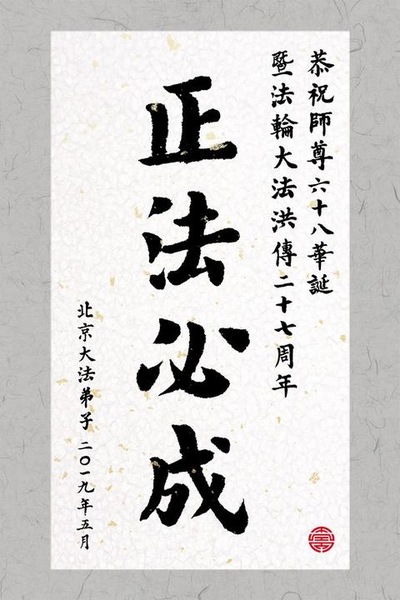 恭祝師尊六十八華誕
暨法輪大法洪傳二十七周年
正法必成
北京大法弟子 二〇一九年五月